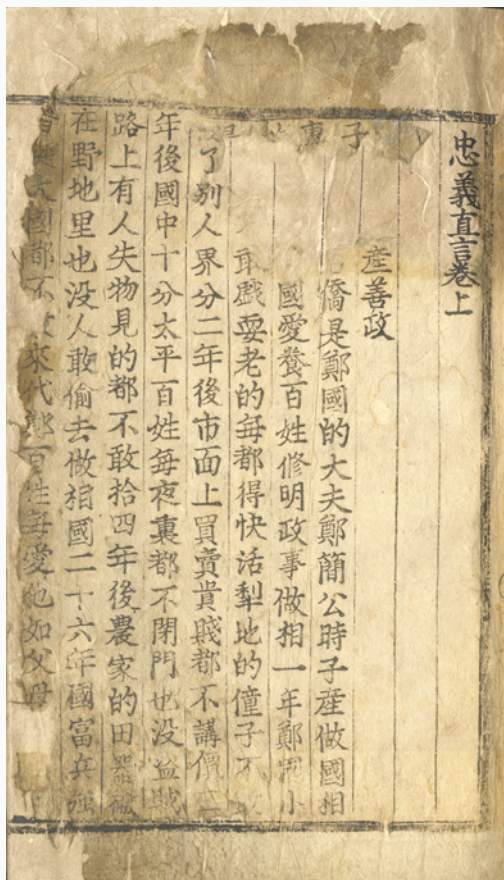 忠義直言卷上
產善政
僑是鄭國的大夫鄭簡公時子產做國相
國愛養百姓修明政事做相一年鄭國小
敢戲耍老的每都得快活犁地的僮子不敢
子 了別人界分二年後市面上買賣貴賤都不講價三
年後國中十分太平百姓每夜裏都不閉門也没盗賊
路上有人失物見的都不敢拾四年後農家的田器
在野地里也没人敢偷去做相國二十六年國富兵強
國都不 來代 百姓每愛他如父母